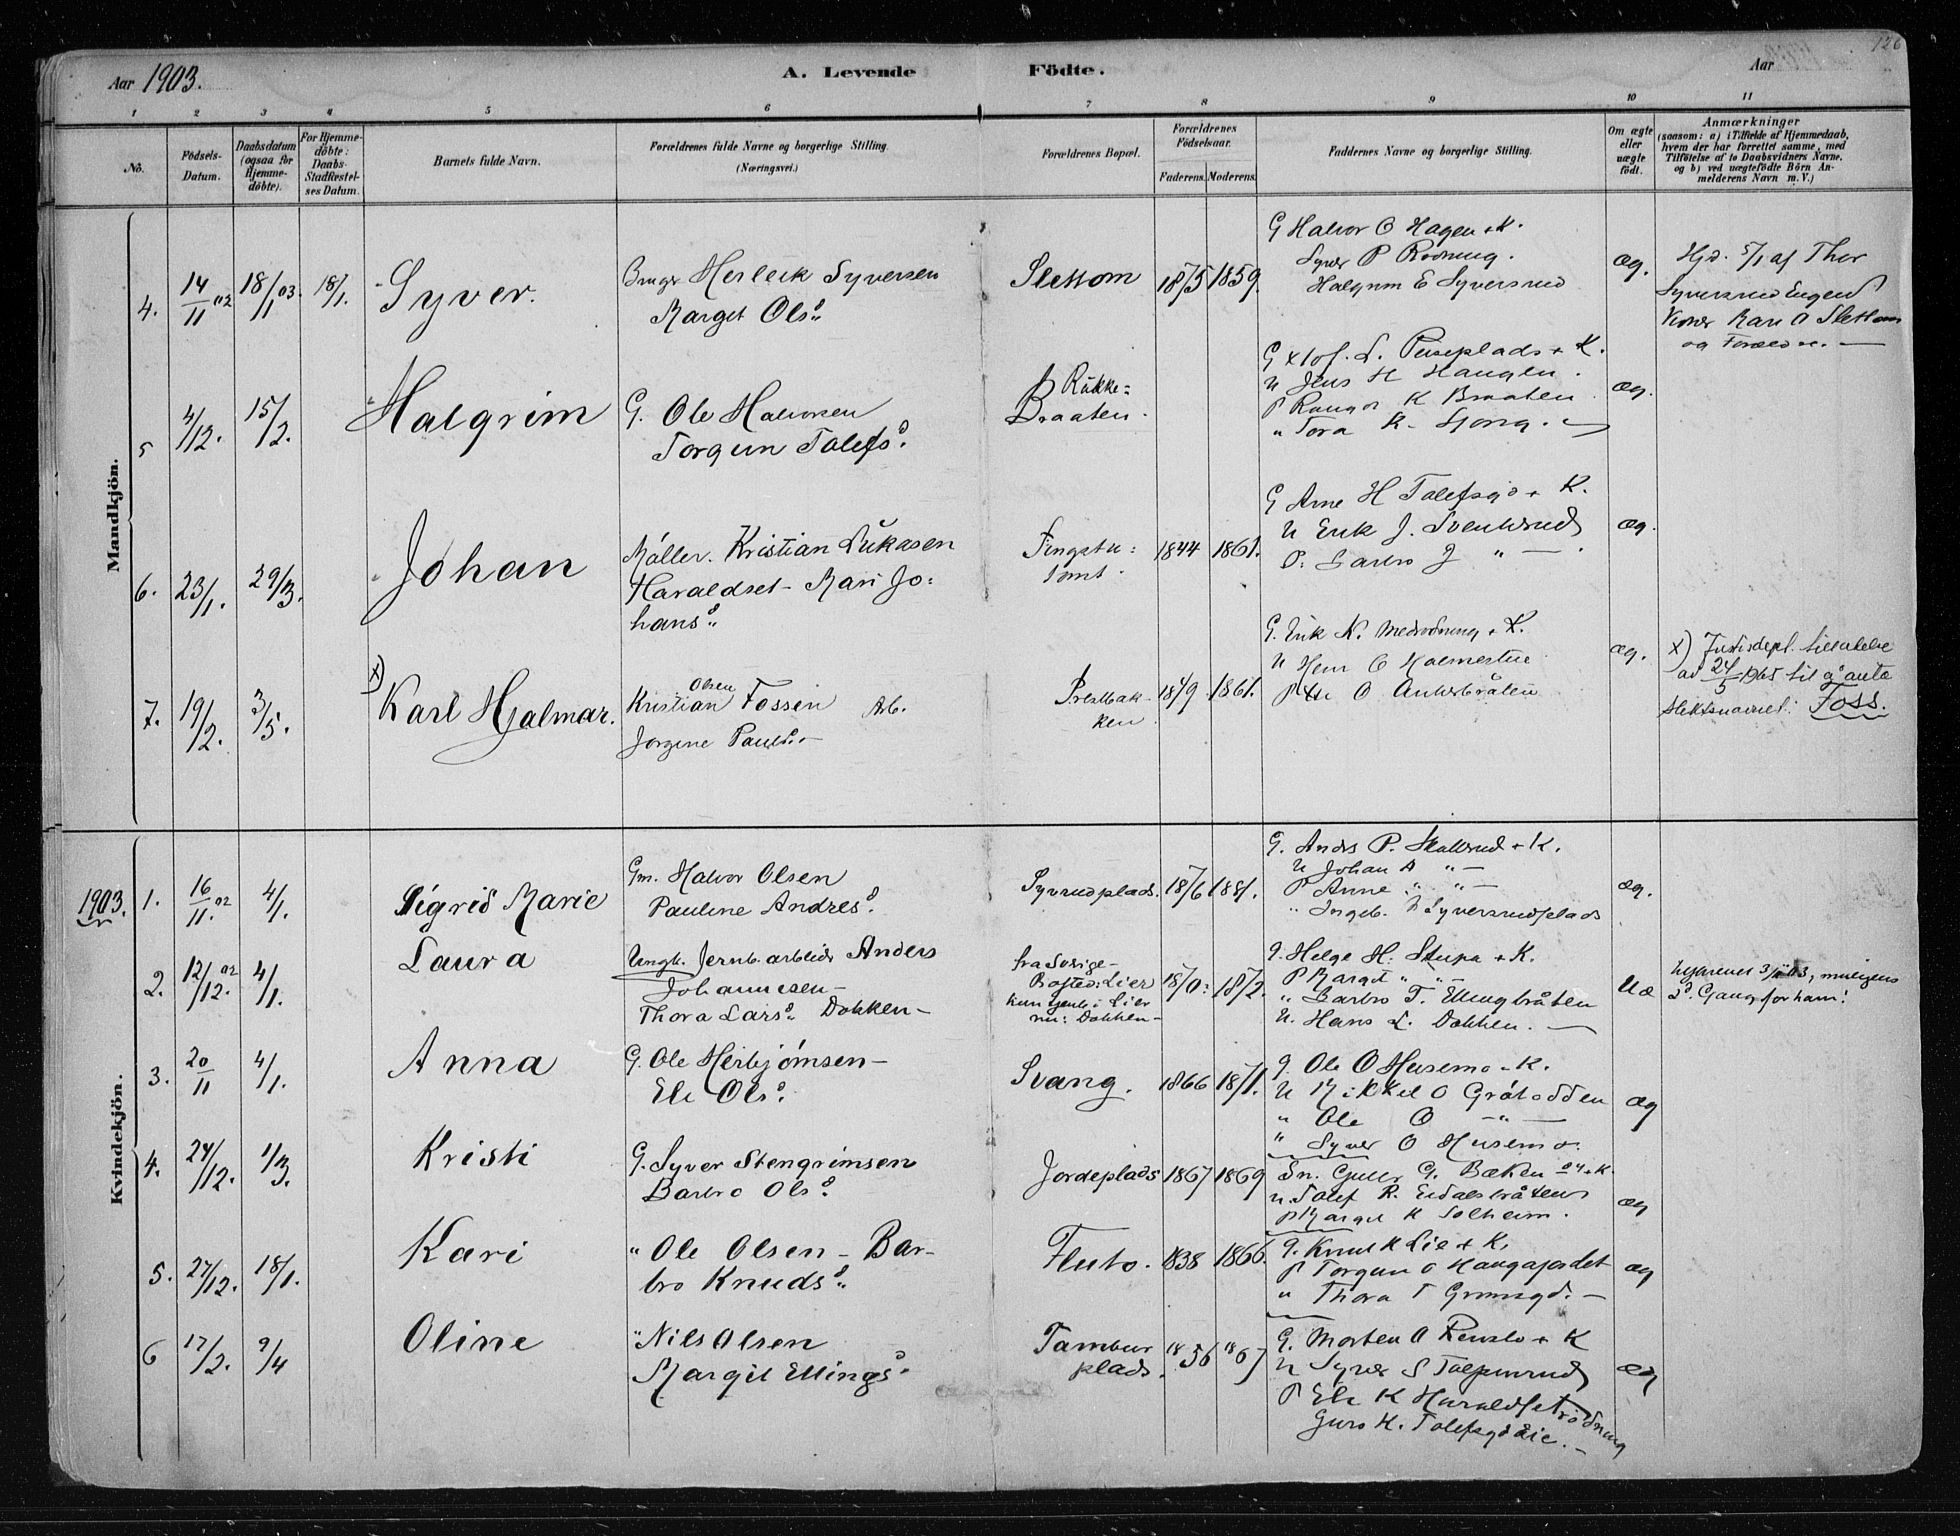 126
Aar 1903.
A. Levende Födte.
Aar
1 2 3 4 5 6 7 8 9 10 11
No.
Födsels-Datum.
Daabsdatum (ogsaa for Hjemme-döbte).
For Hjemme-döbte: Daabs-Stadfestel-ses Datum.
Barnets fulde Navn.
Forældrenes fulde Navne og borgerlige Stilling. (Næringsvei.)
Forældrenes Bopæl.
Forældrenes Födselsaar.
Faderens. Moderens.
Faddernes Navne og borgerlige Stilling.
Om ægte eller uægte födt.
Anmærkninger
(saasom: a) i Tilfælde af Hjemmedaab,
hvem der har forrettet samme, med
Tilföielse af to Daabsvidners Navne,
og b) ved uægtefödte Börn An-
melderens Navn m. V.)
Mandkjön.
4. 14/11 02 18/1 03. 18/1. Syver.
Herleik Syversen
Marget Olsd.
Slettom 1875 1859.
G Halvor O Hagen + K.
Syver P Rodning.
Halgrim E Syversrud
æg.
Hjd. 5/1 af Thor
Syversrud Engen
Kone Kari O Slettom
og Forældre. —
5 4/12. 15/2. Halgrim
G. Ole Halvorsen
Torgun Tolefsd.
Rukke=
Braaten.
K.
U Jens H Haugen.
P K Braaten
" Tora K.
æg.
6. 23/1. 29/3. Johan
Möller. Kristian Lukasen
Haraldset - Mari Jo=
hansd.
1844 1861.
G Arne H Tolefsgd + K.
U Erik J. Svenkerud
P. Barbro J " —
æg.
7. 19/2. 3/5. x) Karl Hjalmar.
Olsen
Kristian Fossen Arb.
Jørgine Paulsd.
Prestbak-
ken
1849 1861.
G. Erik N. Medrodning + K.
U Henr O Holmestue
P O Ankerbråten
æg.
x) Justisdept. tillatelse
av 24/5 1965 til å anta
slektsnavnet: Foss.
Kvindekjön.
1903. 1. 16/11. 02 4/1. Sigrid Marie
Gm. Halvor Olsen
Pauline Andresd.
Syvrudplads. 1876 1881.
G. Andrs P. Skallerud + K.
U Johan A " —
P Anne " " —
" Ingeb. Syversrudplads
æg.
2. 12/12. 02 4/1. Laura
Ungk. Jernb. arbeider Anders
Johannesen —
Thora Larsd. Dokken —
fra Sverige —
Bosted: Lier
kun tjente i Lier
nu: Dokken —
1870: 1872.
G. Helge H. Stupa + K.
P Margit " —
" Barbro T. Ellingbråten
U. Hans L. Dokken. —
Uæ
3. 20/11 4/1. Anna
G. Ole Herbjörnsen —
Eli Olsd.
Svang. 1866 1871.
G. Ole O Husemo - K.
U Mikkel O Gråtodden
" Ole O — " —
" Syver O Husemo.
æg
4. 24/12. 1/3. Kristi
G. Syver Stengrimsen
Barbro Olsd.
Jordeplads 1867 1869
Sn. Guller G. Bæken + K
U. Tolef R. Eidalsbråten
P Margit K Solheim.
æg
5. 27/12. 18/1. Kari
" Ole Olsen - Bar-
bro Knudsd.
Fluto. 1838 1866.
G. Knut K Lie + K.
P Torgun O Haugajordet
" Thora T Grimsgd. —
æg
6 17/2. 9/4 Oline
" Nils Olsen
Margit Ellingsd.
Tambur
plads.
1856 1867
G. Morten O + K
U Syver S
P Eli K Haraldset
Guro K. Tolefsgd Eie. —
æg